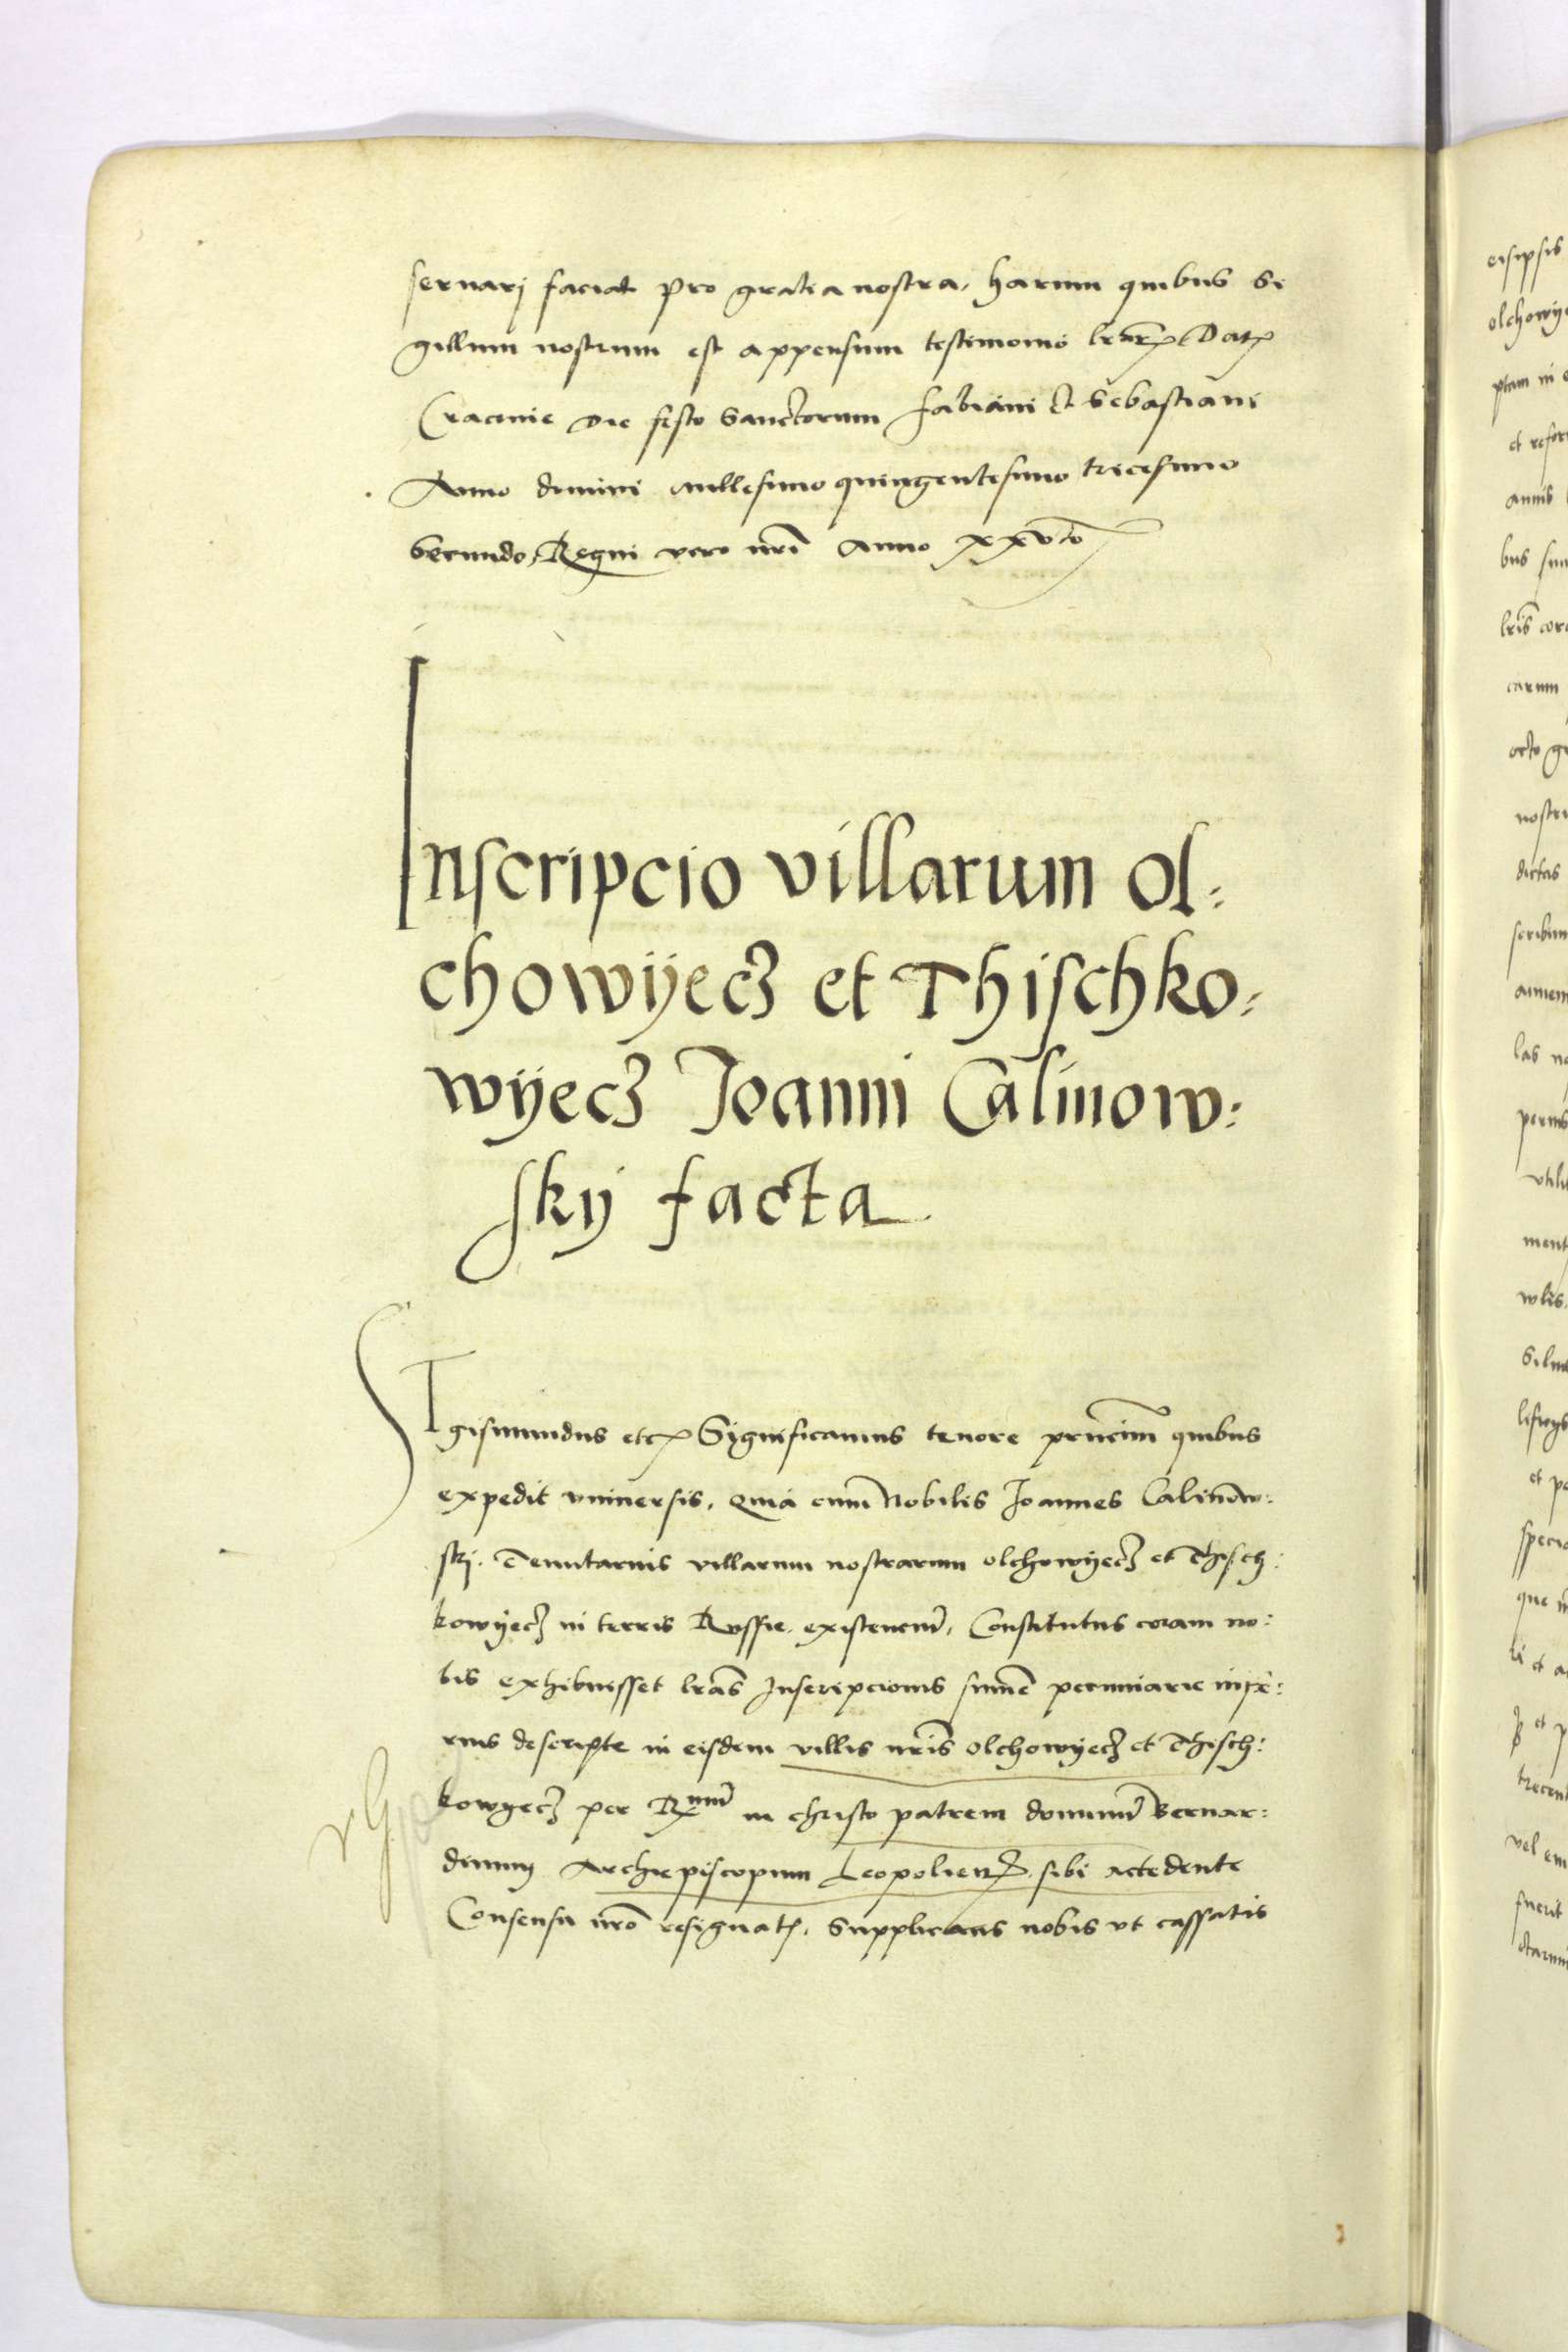 seruarj faciat pro gratia nostra. harum quibus Si
gillum nostrum est appensum testimonio lrarꝝ Datꝭ
Cracouie die festo Sanctorum Fabiani et Sebastiani
Anno domini millesimo quingentesimo tricesimo
Secundo, Regni vero nr̄i Anno xxvto
Inscripcio villarum Ol:
chowÿecz et Thischko:
wÿecz Joanni Calinow:
skÿ facta
SIgismundus etcꝭ Significamus tenore pn̄cium̄ quibus
expedit vniuersis, Quia cum Nobilis Joannes Calinow:
skj. Tenutarius villarum nostrarum Olchowÿecz et Thisch:
kowÿecz in terris Russie existencium̄, Constitutus coram no:
bis exhibuisset lr̄as Inscripcionis sum̄e pecuniarie infe:
rius descripte in eisdem villis nr̄is Olchowÿecz et Thisch:
kowyecz per Rmum in christo patrem dominum̄ Bernar:
dinum Archiepiscopum Leopolien̄ sibi accedente
Consensu nr̄o resignatꝭ. Supplicans nobis vt cassatis